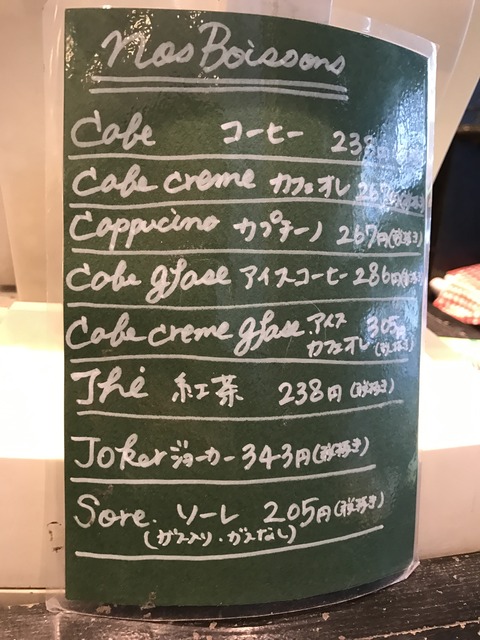 Nos Boissons
Cabe コーヒー 238
Cabe creme カフェオレ 267
Cappucino カプチーノ 267円(税抜き)
Cabe glase アイスコーヒー 286円(税抜き)
Cabe creme glase アイスカフェオレ 305円(税抜き)
Thé 紅茶 238円(税抜き)
Joker ジョーカー 343円(税抜き)
Sore. ソーレ 205円(税抜き)
(ガス入り・ガスなし)